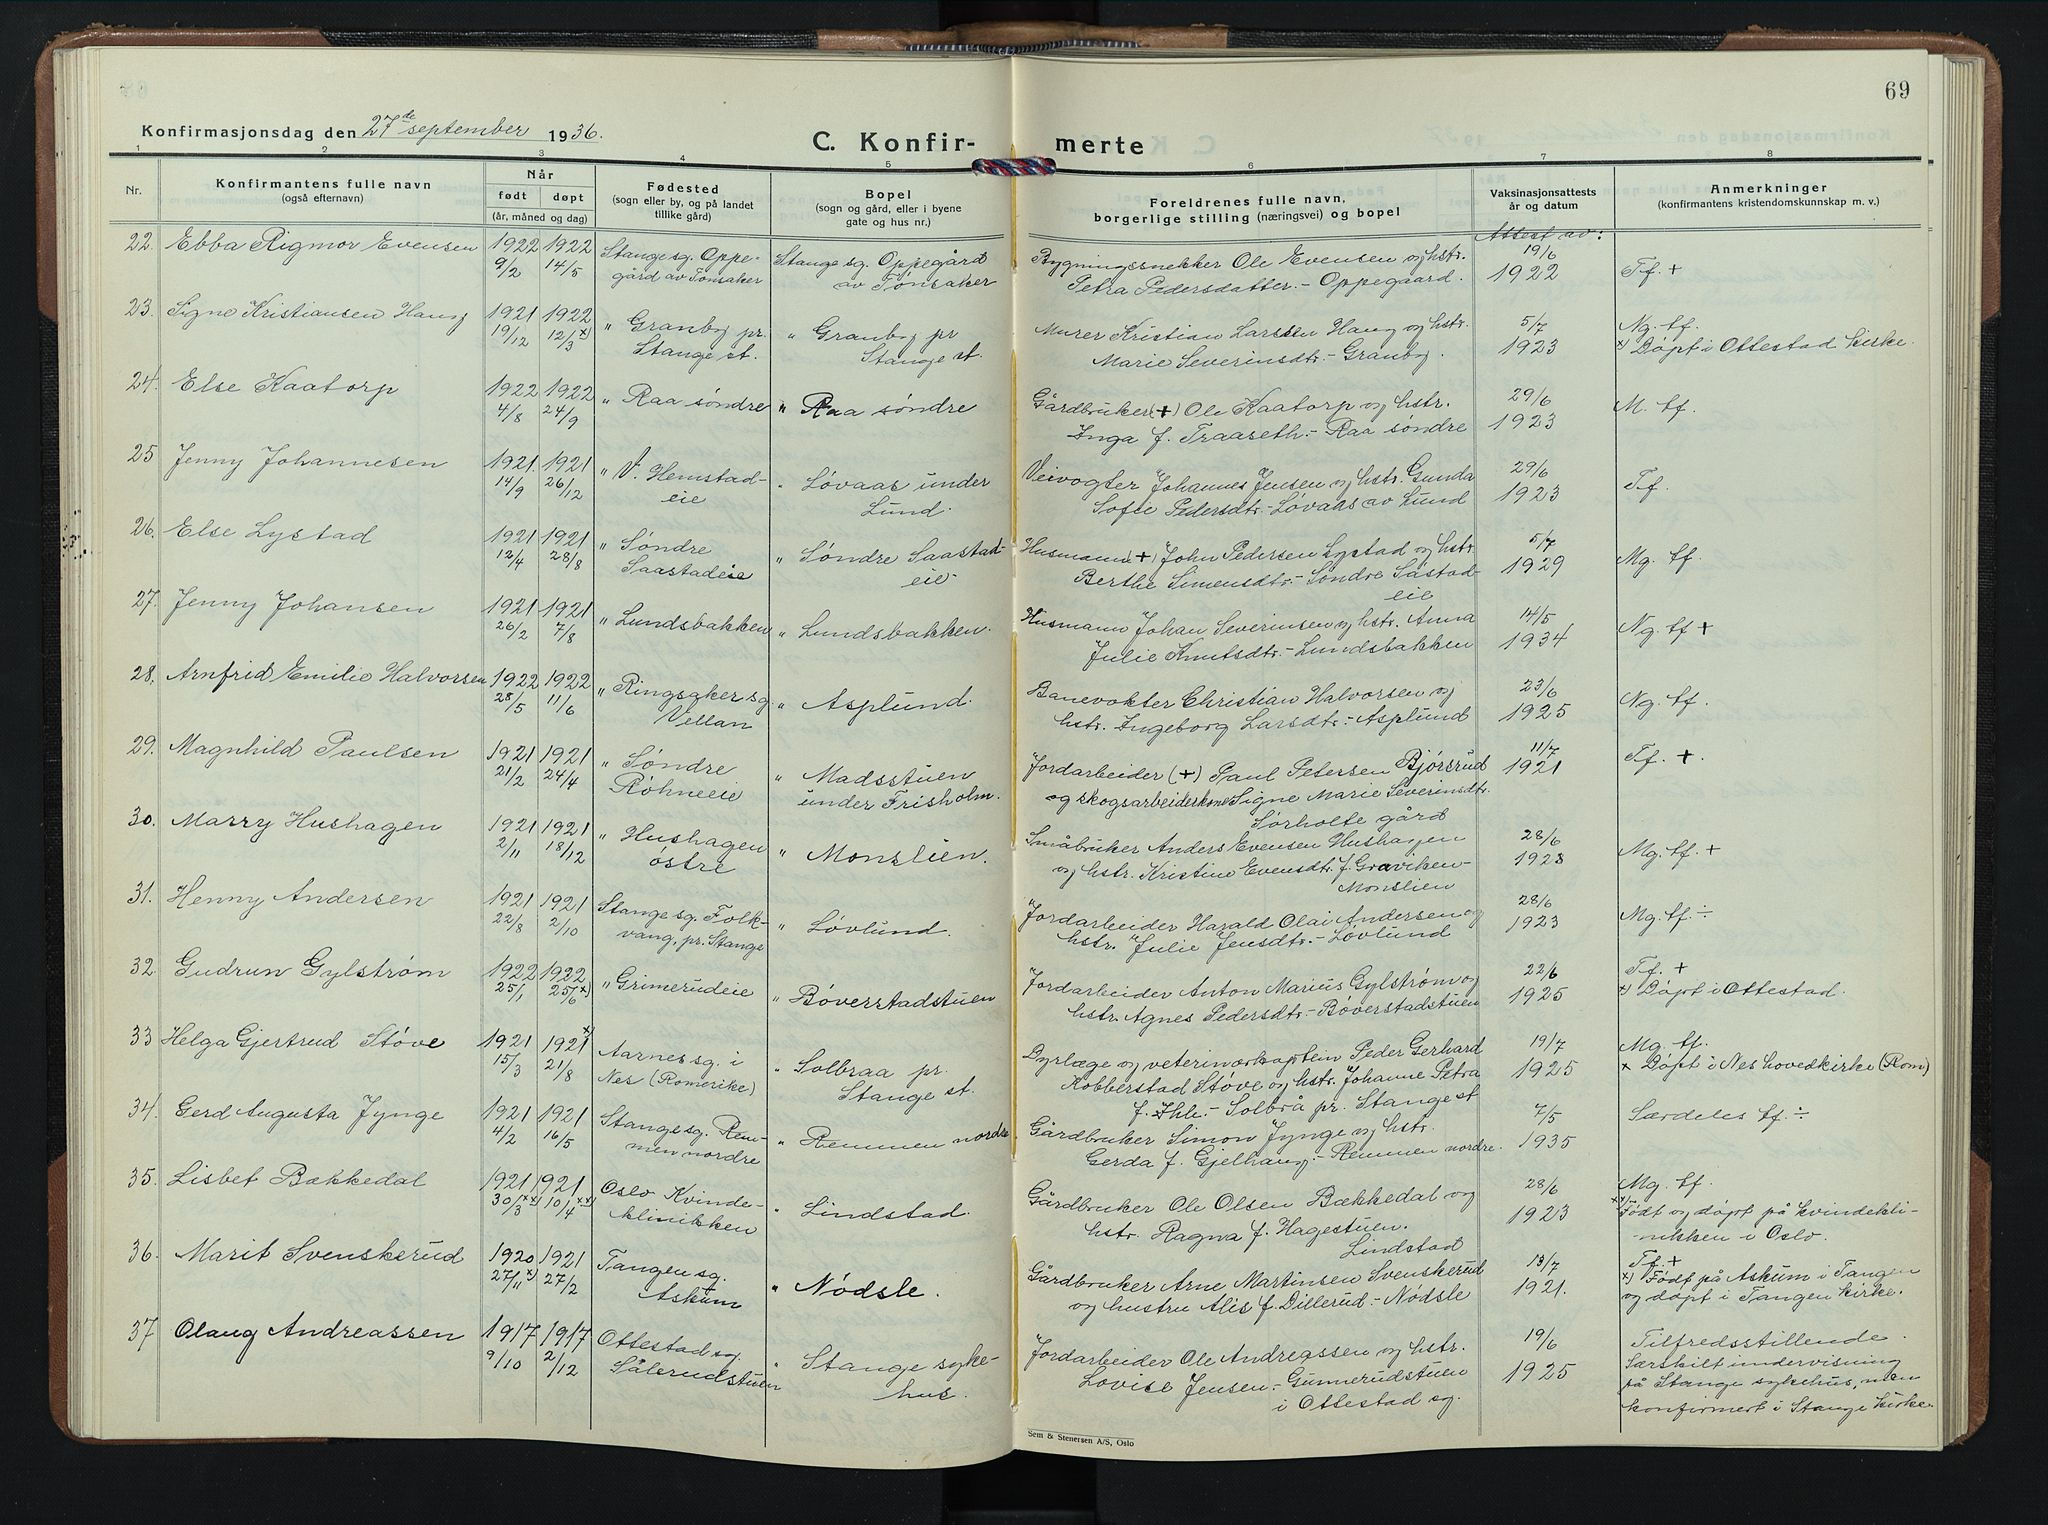 69
Konfirmasjonsdag den 27de september 1936.
C. Konfir- merte
1 2 3 4 5 6 7 8
Nr.
Konfirmantens fulle navn
(også efternavn)
Når
født døpt
(år, måned og dag)
Fødested
(sogn eller by, og på landet
tillike gård)
Bopel
(sogn og gård, eller i byene
gate og hus nr.)
Foreldrenes fulle navn,
borgerlige stilling (næringsvei) og bopel
Vaksinasjonsattests
år og datum
Anmerkninger
(konfirmantens kristendomskunnskap m. v.)
Attest av:
22. Ebba Rigmor Evensen 1922 1922 Stange sg. Oppe- Stange sg. Oppegård Bygningssnekker Ole Evensen og hstr. 19/6
9/2 14/5 gård av Tønsaker av Tønsaker Petra Pedersdatter.- Oppegaard. 1922 Tf. +
23. Signe Kristiansen Haug 1921 1922 " Granbog pr. " Granbog pr Murer Kristian Larssen Haug og hstr. 5/7 Ng. tf.
19/12 12/3 x) Stange st. Stange st. Marie Severinsdtr.- Granbog. 1923 x) Døpt i Ottestad kirke.
24. Else Kaatorp 1922 1922 " Raa søndre " Raa søndre Gårdbruker (+) Ole Kaatorp og hstr. 29/6 M. tf.
4/8 24/9 Inga f. Traaseth.- Raa søndre 1923
25 Jenny Johannesen 1921. 1921 " V. Hemstad- " Løvaas under Veivogter Johannes Jensen og hstr. Gunda 29/6
14/9 26/12 eie Lund. Sofie Pedersdtr.- Løvaas av Lund 1923 Tf.
26. Else Lystad 1921 1921 " Søndre " Søndre Saastad- Husmann (+) John Pedersen Lystad og hstr. 5/7
12/4 28/8 Saastadeie eie. Berthe Simensdtr.- Søndre Såstad- 1929 Mg. tf.
eie
27. Jenny Johansen 1921 1921 " Lundsbakken " Lundsbakken. Husmann Johan Severinsen og hstr. Anna 14/5
26/2 7/8 Julie Knutsdtr.- Lundsbakken 1934 Ng. tf +
28. Arnfrid Emilie Halvorsen 1922 1922 " Ringsaker sg. " Asplund. Banevokter Christian Halvorsen og 23/6
28/5 11/6 Vellan hstr. Ingeborg Larsdtr.- Asplund 1925 Ng. tf.
29. Magnhild Paulsen 1921 1921 " Søndre " Madsstuen Jordarbeider (+) Paul Petersen Bjørsrud 11/7
21/2 24/4 Røhneeie under Frisholm. og skogsarbeiderkone Signe Marie Severinsdtr. 1921 Tf. +.
Sørholte gård
30. Marry Hushagen 1921 1921 " Hushagen " Monslien. Småbruker Anders Evensen Hushagen 28/6
2/11 18/12 østre og hstr. Kristine Evensdtr. f. Graviken- 1923 Mg. tf. +
Monslien
31. Henny Andersen 1921 1921 Stange sg. Folk- " Løvlund. Jordarbeider Harald Olai Andersen og 28/6
22/8 2/10 vang, pr. Stange hstr. Julie Jensdtr.- Løvlund 1923 Mg. tf. ÷
32. Gudrun Gylstrøm 1922 1922 " Grimerudeie " Bøverstadstuen Jordarbeider Anton Marius Gylstrøm og 22/6 Tf. +
25/1 25/6 x) hstr. Agnes Pedersdtr.- Bøverstadstuen 1925 x) Døpt i Ottestad.
33 Helga Gjertrud Støve 1921 1921 x) Aarnes sg. i " Solbraa pr. Dyrlæge og veterinærkaptein Peder Gerhard 19/7 Mg. tf.
15/3 21/8 Nes (Romerike) Stange st. Kobberstad Støve og hstr. Johanne Petra 1925 x Døpt i Nes hovedkirke (Rom)
f. Ihle.- Solbrå pr. Stange st
34. Gerd Augusta Jynge 1921 1921 Stange sg. Rem- " Remmen nordre. Gårdbruker Simon Jynge og hstr. 7/5 Særdeles tf. ÷
4/2 16/5 men nordre Gerda f. Gjelhaug.- Remmen nordre. 1935
35. Lisbet Bækkedal 1921 1921 Oslo Kvinde- " Lindstad. Gårdbruker Ole Olsen Bækkedal og 28/6 Mg. tf.
30/3 xx) 10/4 xx) klinikken hstr. Ragna f. Hagestuen. 1923 xx) Født og døpt på Kvindekli-
Lindstad -nikken i Oslo.
36. Marit Svenskerud 1920 1921 Tangen sg. " Nødsle. Gårdbruker Arne Martinsen Svenskerud 13/7 Tf. +
27/11 x) 27/2 Askum og hustru Alis f. Dillerud.- Nødsle 1921. x) Født på Askum i Tangen
og døpt i Tangen kirke.
37 Olaug Andreassen 1917 1917 Ottestad sg. " Stange syke- Jordarbeider Ole Andreassen og hstr. 19/6 Tilfredsstillende.
9/10 2/12 Sålerudstuen hus. Lovise Jensen.- Gunnerudstuen 1925 Særskilt undervisning
i Ottestad sg. på Stange sykehus, men
konfirmert i Stange kirke.
Sem & Stenersen A/S, Oslo